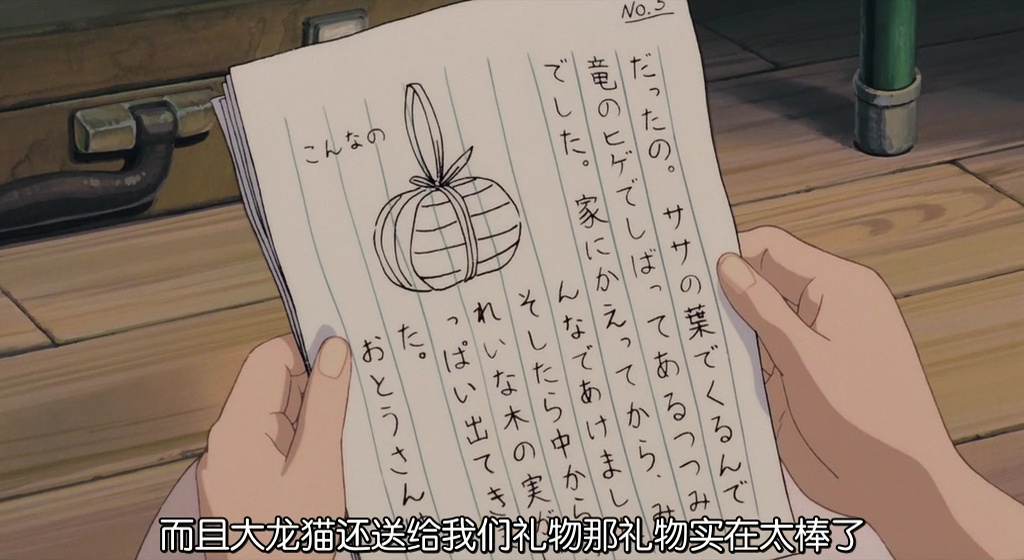 No.
だったの。ササの葉でくるんで
竜のヒゲでしばってあるつつみ
でした。家にかえってから、み
んなであけまし
そしたら中から
れいな木の実が
っぱい出てき
た。
おとうさん
こんなの
而且大龙猫还送给我们礼物那礼物实在太棒了